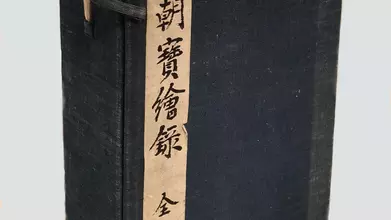 朝寶繪錄 全